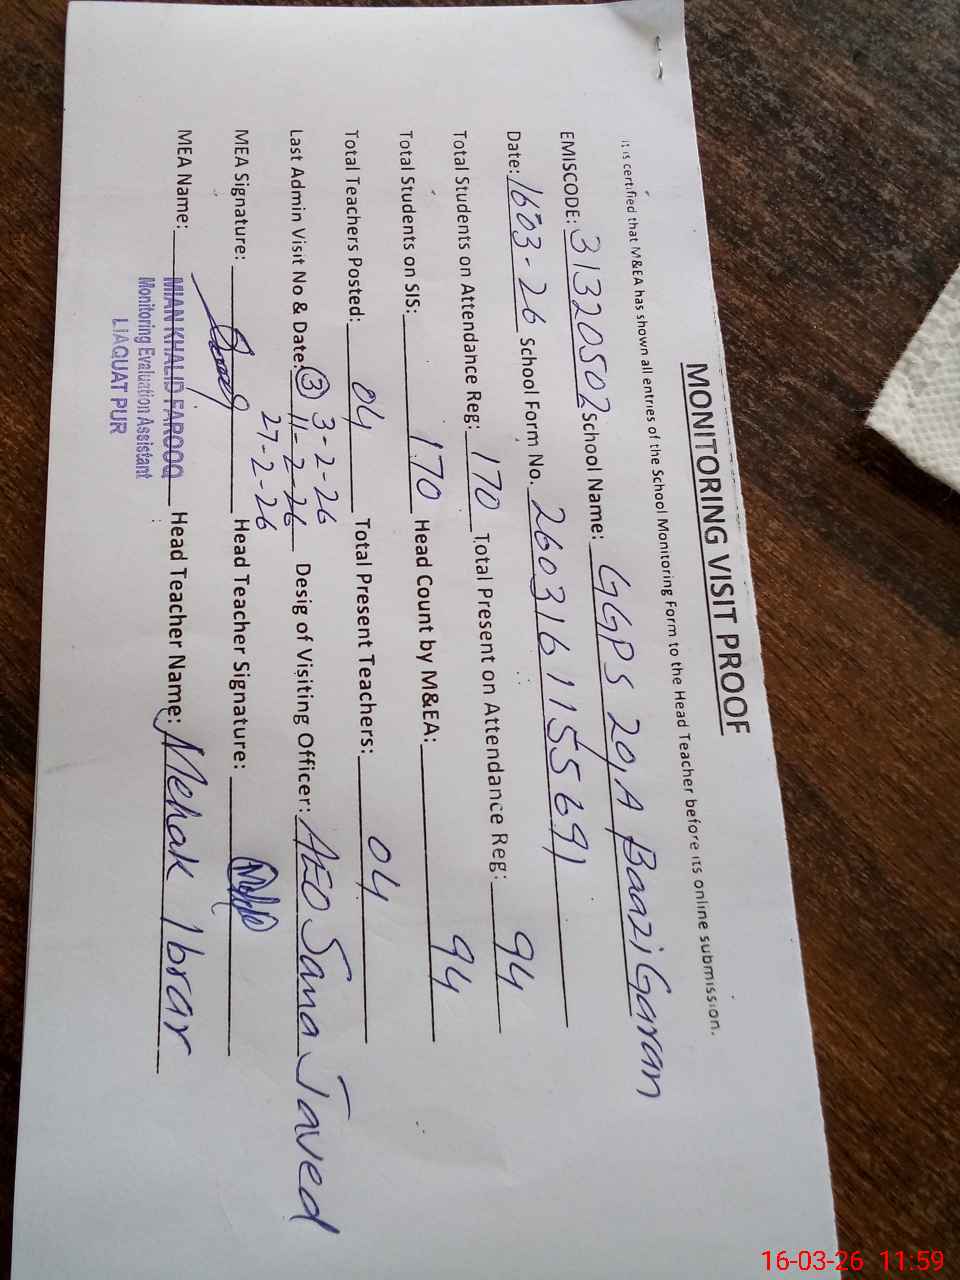 MONITORING VISIT PROOF
It is certified that M&EA has shown all entries of the School Monitoring Form to the Head Teacher before its online submission.
EMISCODE: 31320502 School Name: GGPS 20,A Baazi Garan
Date: 1603-26 School Form No. 2603161155691
Total Students on Attendance Reg: 170 Total Present on Attendance Reg: 94
Total Students on SIS: 170 Head Count by M&EA: 94
Total Teachers Posted: 04 Total Present Teachers: 04
3-2-26
Last Admin Visit No & Date: 3 11-2-26 Desig of Visiting Officer: AEO Sana Javed
27-2-26
MEA Signature: Head Teacher Signature:
MEA Name: MIAN KHALID FAROOQ Head Teacher Name: Mehak Ibrar
Monitoring Evaluation Assistant
LIAQUAT PUR
16-03-26 11:59